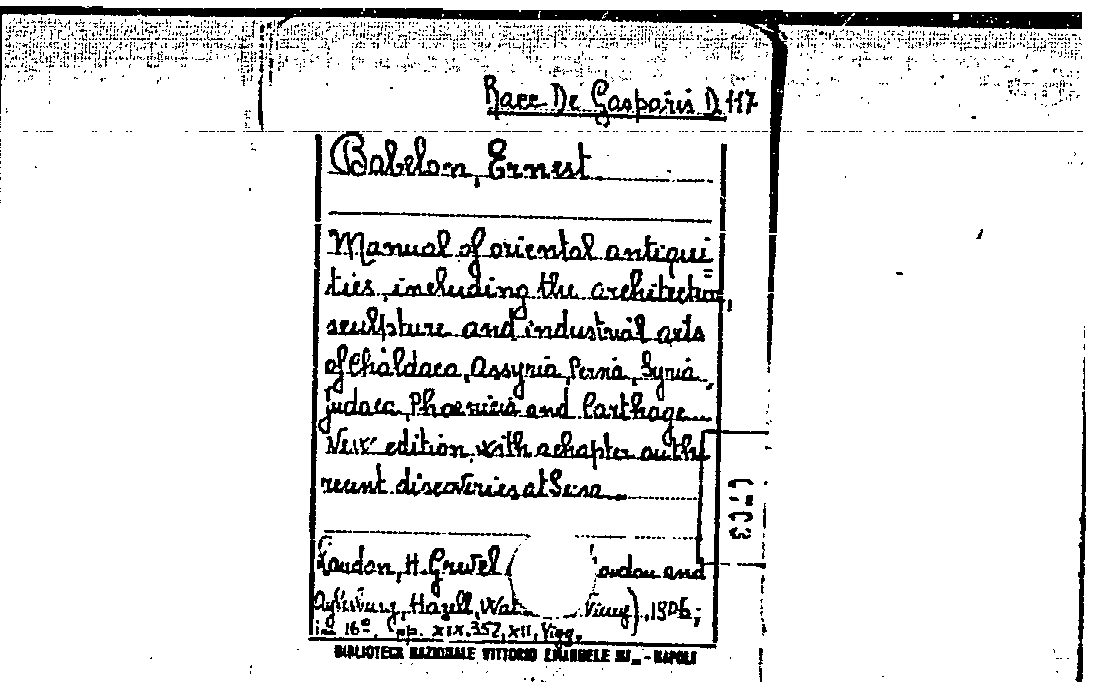 Racc De Gasparis D 117
Babelon, Ernest
Manual of oriental antiqui=
ties, including the architecture,
sculpture and industrial arts
of Chaldaea, Assyria, Persia, Syria,
Judaea, Phoenicia and Carthage
New edition, with a chapter on the
recent discoveries at Susa
London, H. Grevel London and
Aylesbury, Hazell, Wat Viney), 1906;
in 16º, pp. XIX, 352, XII, Figg.
BIBLIOTECA NAZIONALE VITTORIO EMANUELE III - NAPOLI